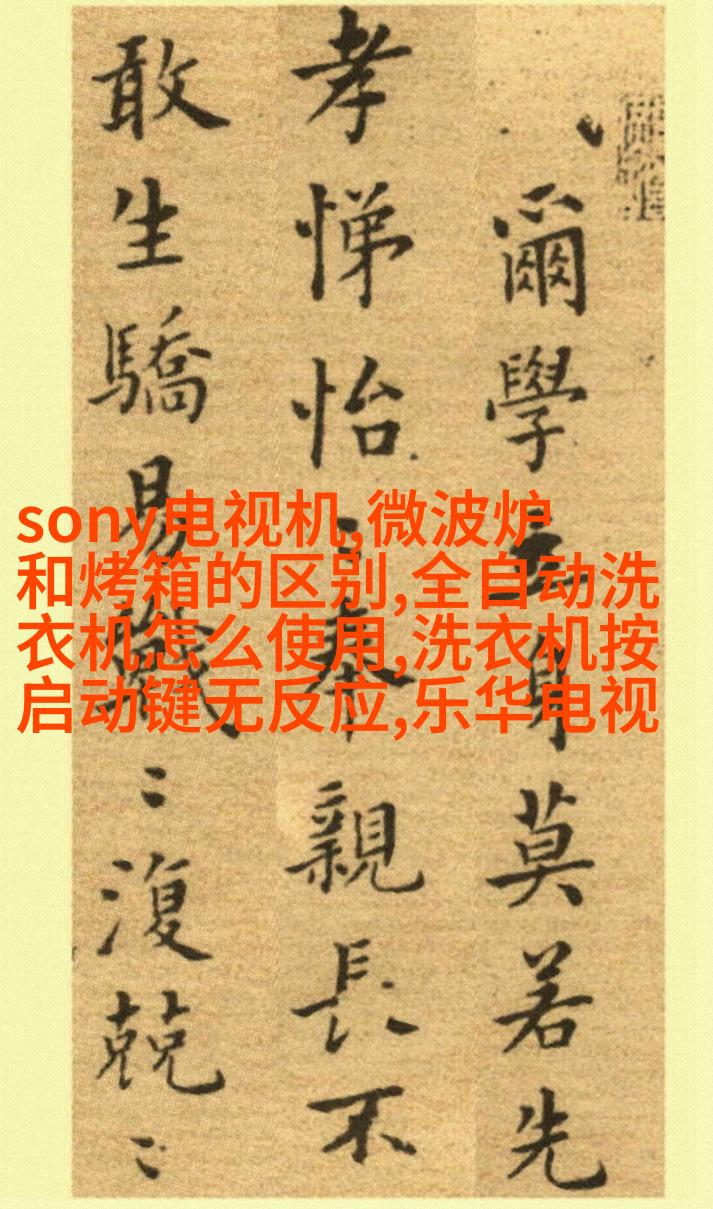 爾學立身莫若先
孝悌怡〻奉親長不
敢生驕易戰〻復兢〻
sony电视机,微波炉
和烤箱的区别,全自动洗
衣机怎么使用,洗衣机按
启动键无反应,乐华电视